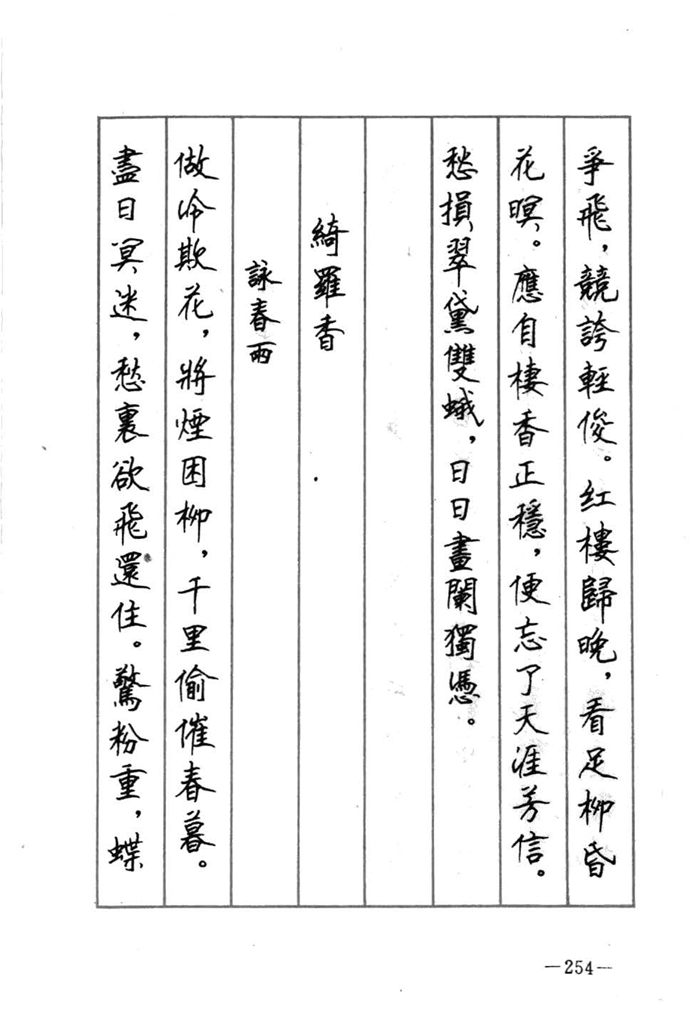 爭飛，競誇輕俊。红樓歸晚，看足柳昏
花暝。應自棲香正穩，便忘了天涯芳信。
愁損翠黛雙蛾，日日畫闌獨憑。
綺羅香
詠春雨
做冷欺花，將煙困柳，千里偷催春暮。
盡日冥迷，愁裏欲飛還住。驚粉重，蝶
—254—